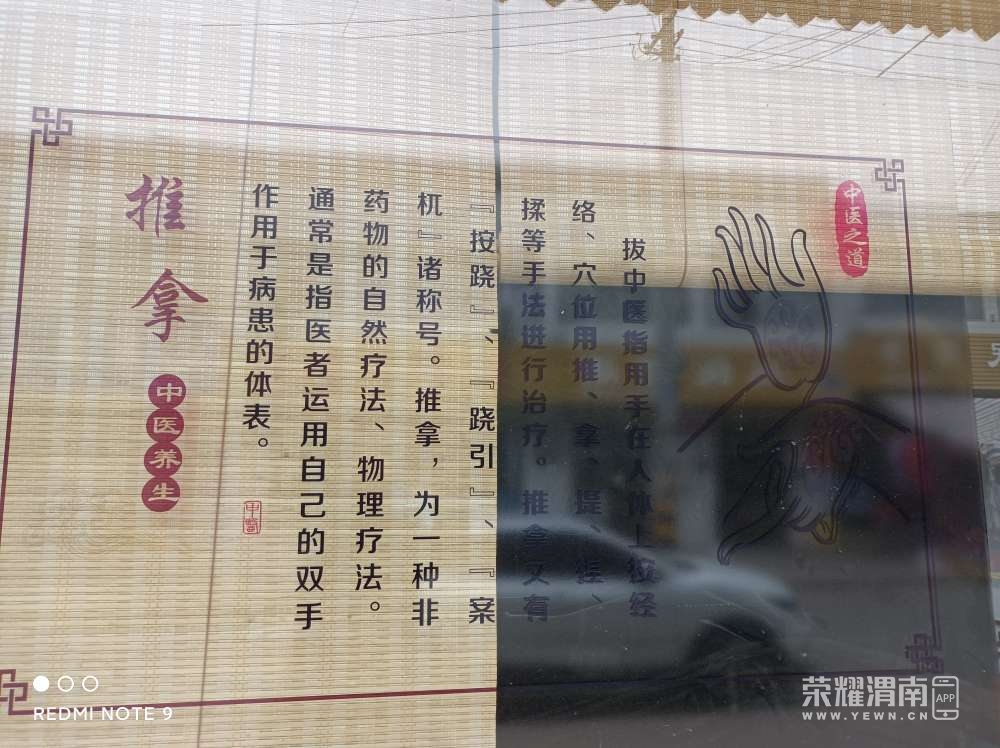 中医之道
拔中医指用手在人体上按经
络、穴位用推、拿、提、捏、
揉等手法进行治疗。推拿又有
『按跷』、『跷引』、『案
杌』诸称号。推拿，为一种非
药物的自然疗法、物理疗法。
通常是指医者运用自己的双手
作用于病患的体表。
中醫
推拿
中医养生
REDMI NOTE 9
荣耀渭南
APP
WWW.YEWN.CN